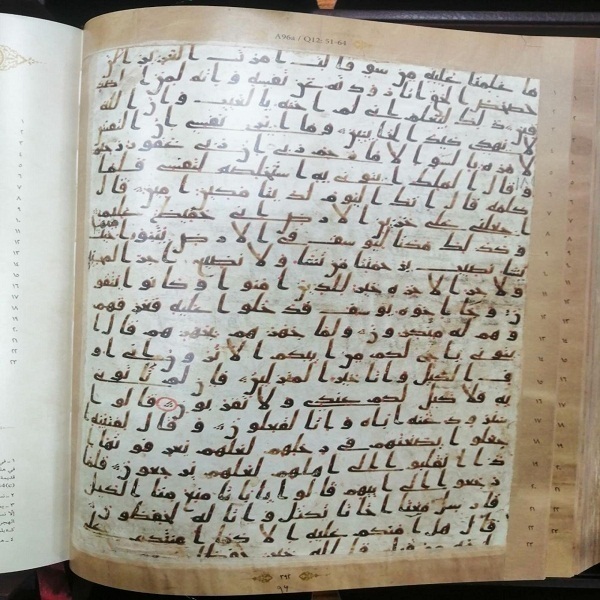 A96a / Q12: 51-64
ما علمنا عليه من سو قالت امرت العزيز الن
حصحص الحق انا رودته عن نفسه وانه لمن الصد
قين ذلك ليعلم اني لم اخنه بالغيب وان الله
لا يهدي كيد الخاينين وما ابري نفسي ان النفس
لامره بالسوا الا ما رحم ربي ان ربي غفور رحيم
و قال الملك ايتوني به استخلصه لنفسي فلما
كلمه قال انك اليوم لدينا مكين امين قال
اجعلني على خزين الارض اني حفيظ عليم
و كذلك مكنا ليوسف في الارض يتبوا منها حيث
يشا نصيب برحمتنا من نشا ولا نضيع اجر المحسنين
ولاجر الاخره خير للذين امنوا و كانوا يتقو
ن و جا اخوه يوسف فدخلوا عليه فعرفهم
و هم له منكرون ولما جهزهم بجهزهم قال ا
يتوني باخ لكم من ابيكم الا ترون اني او
في الكيل و انا خير المنزلين فان لم تاتوني
به فلا كيل لكم عندي ولا تقربون قالوا
سنرود عنه اباه وانا لفعلون و قال لفتيته ا
جعلوا بضعتهم في رحلهم لعلهم يعرفونها
اذا انقلبوا الى اهلهم لعلهم يرجعون فلما
رجعوا الى ابيهم قالوا يابانا منع منا الكيل
فارسل معنا اخانا نكتل و انا له لحفظون
قال هل امنكم عليه الا كما امنتكم على
اخيه من قبل فالله خير حفظا
٢٩١